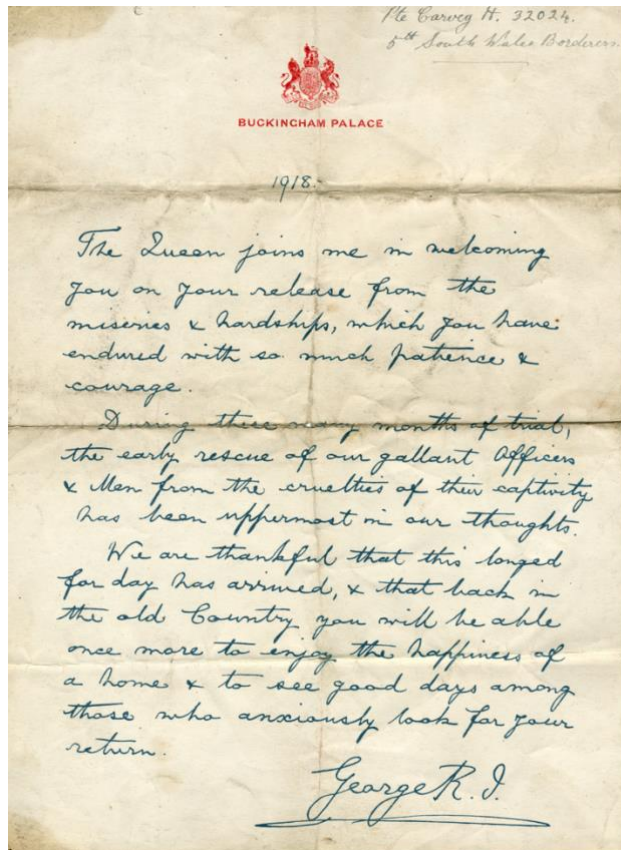 Pte Carveg H. 32024.
5th South Wales Borderers.
BUCKINGHAM PALACE
1918.
The Queen joins me in welcoming
you on your release from the
miseries & hardships, which you have
endured with so much patience &
courage.
During these many months of trial,
the early rescue of our gallant Officers
& Men from the cruelties of their captivity
has been uppermost in our thoughts.
We are thankful that this longed
for day has arrived, & that back in
the old Country you will be able
once more to enjoy the happiness of
a home & to see good days among
those who anxiously look for your
return.
George R.I.